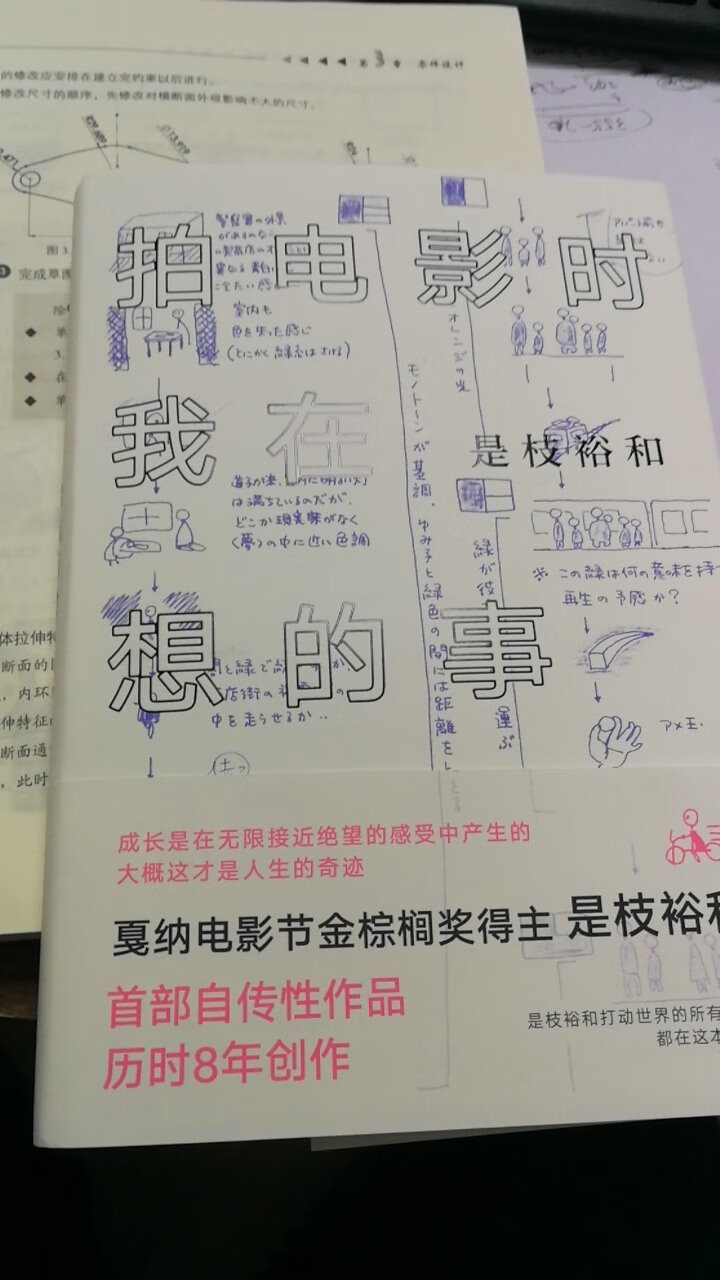 第3章 零件设计
的修改应安排在建立完约束以后进行。
修改尺寸的顺序，先修改对横断面外观影响不大的尺寸。
图3.
完成草图
体拉伸特
断面的
，内环
伸特征
断面通
，此时
拍电影时
我在
想的事
是枝裕和
室内も
色を失った感じ
(とにかく緑系はさける)
オレンジの光
モノトーンが基調、ゆみ子と緑色の間には距離をとる
は満ちているのだが、
どこか現実味がなく
〈夢〉の中に近い色調
緑が役
運ぶ
※ この緑は何の意味を持
再生の予感か？
中を走らせるか‥
アメ玉.
成长是在无限接近绝望的感受中产生的
大概这才是人生的奇迹
戛纳电影节金棕榈奖得主 是枝裕和
首部自传性作品
历时8年创作
是枝裕和打动世界的所有
都在这本